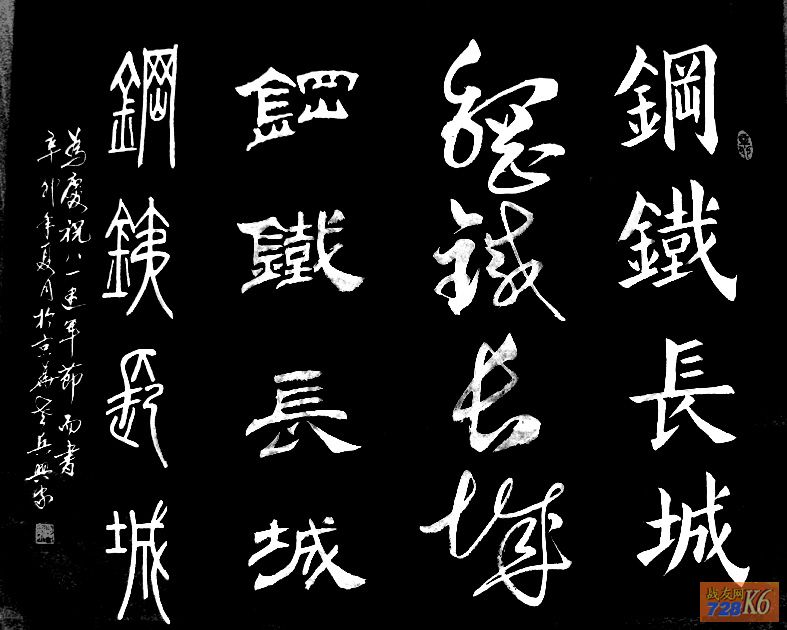 鋼鐵長城
鋼鐵長城
鋼鐵長城
鋼銕長城
為慶祝八一建軍節而書
辛卯年夏月於京華老兵興
战友网
728 K6